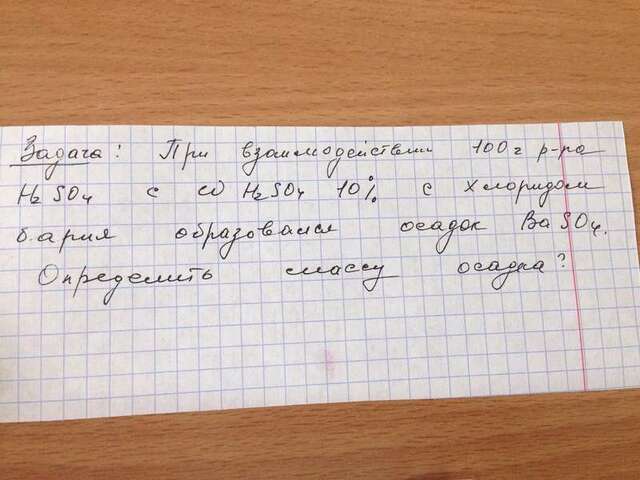 Задача: При взаимодействии 100г р-ра
H₂SO₄ с ω H₂SO₄ 10% с хлоридом
бария образовался осадок BaSO₄.
Определить массу осадка?